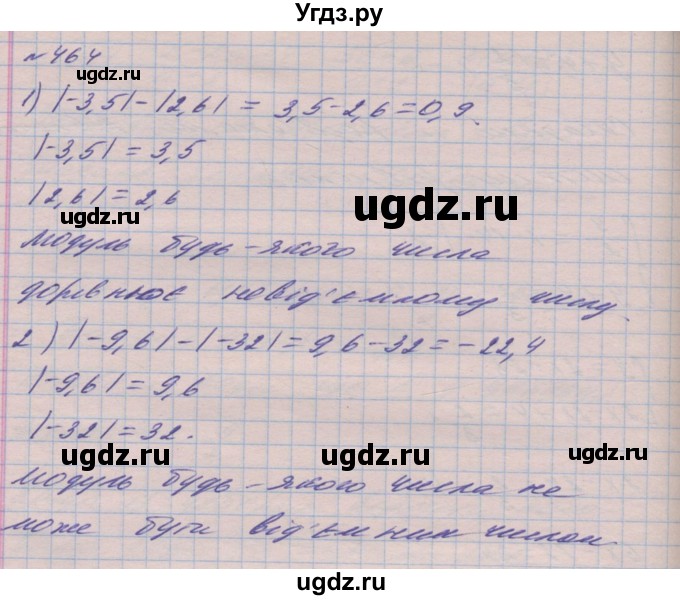 Угдз.ру
№464
ugdz.ru
1) |-3,5| - |2,6| = 3,5 - 2,6 = 0,9.
|-3,5| = 3,5
|2,6| = 2,6
ugdz.ru
ugdz.ru
модуль будь-якого числа
дорівнює невід'ємному числу.
2) |-9,6| - |-32| = 9,6 - 32 = -22,4
|-9,6| = 9,6
|-32| = 32.
ugdz.ru
ugdz.ru
ugdz.ru
модуль будь-якого числа не
може бути від'ємним числом.
ugdz.ru